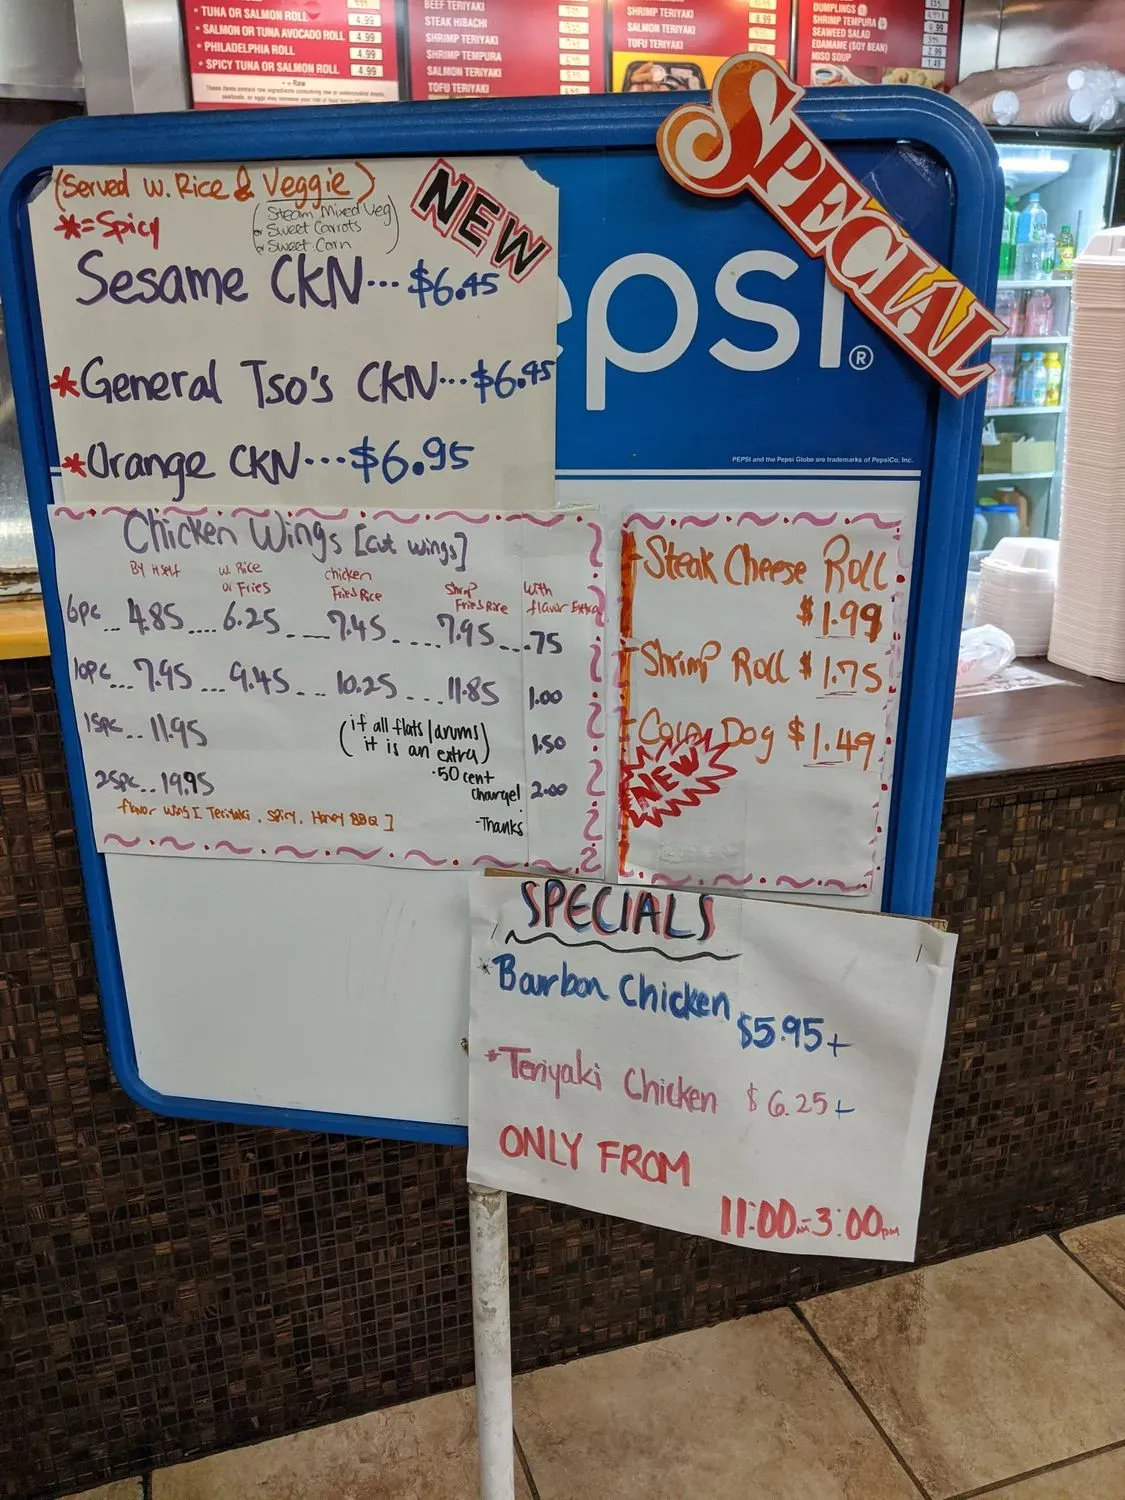 TUNA OR SALMON ROLL 4.99
SALMON OR TUNA AVOCADO ROLL 4.99
PHILADELPHIA ROLL 4.99
SPICY TUNA OR SALMON ROLL 4.99
BEEF TERIYAKI
STEAK HIBACHI
SHRIMP TERIYAKI
SHRIMP TEMPURA
SALMON TERIYAKI
TOFU TERIYAKI
SHRIMP TERIYAKI 8.99
SALMON TERIYAKI
TOFU TERIYAKI
DUMPLINGS
SHRIMP TEMPURA
SEAWEED SALAD
EDAMAME (SOY BEAN) 2.99
MISO SOUP 1.49
SPECIAL
(Served w. Rice & Veggie)
*=Spicy
(Steam Mixed Veg
or Sweet Carrots
or Sweet Corn)
NEW
Sesame CKN...$6.45
*General Tso's CKN...$6.45
*Orange CKN...$6.95
epsi®
PEPSI and the Pepsi Globe are trademarks of PepsiCo, Inc.
Chicken Wings [cut wings]
By itself
w. Rice or Fries
chicken Fried Rice
Shrimp Fried Rice
With flavor Extra
6pc ... 4.85 .... 6.25 .... 7.45 .... 7.95 ... .75
10pc ... 7.95 ... 9.45 ... 10.25 ... 11.85 1.00
15pc .. 11.95 1.50
25pc .. 19.95 2.00
(if all flats/drums)
(it is an extra)
.50 cent
charge!
-Thanks
flavor wing [Teriyaki, Spicy, Honey BBQ]
Steak Cheese Roll
$1.99
Shrimp Roll $1.75
Corn Dog $1.49
NEW
SPECIALS
*Bourbon Chicken
$5.95+
*Teriyaki Chicken $6.25+
ONLY FROM
11:00AM-3:00PM